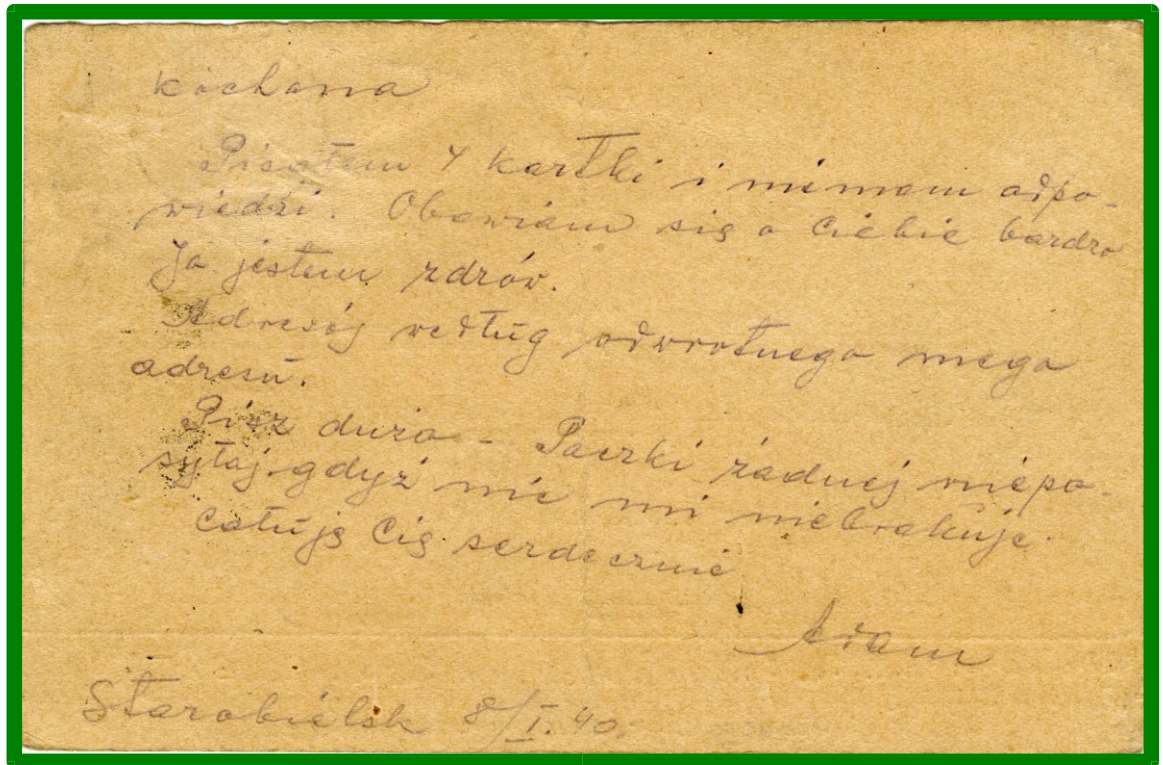 Kochana
Pisałem 4 kartki i niemam odpo-
wiedzi. Obawiam się o Ciebie bardzo
Ja jestem zdrów.
Adresój według odwrotnego mego
adresu.
Pisz dużo - Paczki żadnej niepo-
syłaj gdyż nic mi niebrakuje.
Całuję Cię serdecznie
Adam
Starobielsk 8/I.40.